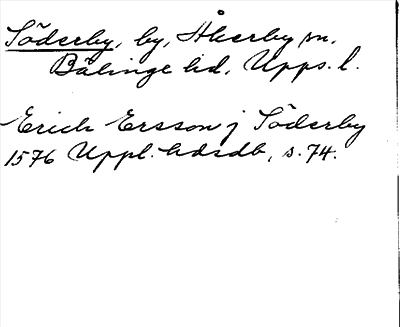 Söderby, by, Åkerby sn.
Bälinge hd. Upps. l.
Erich Ersson j Söderby
1576 Uppl. hdsdb, s. 74.